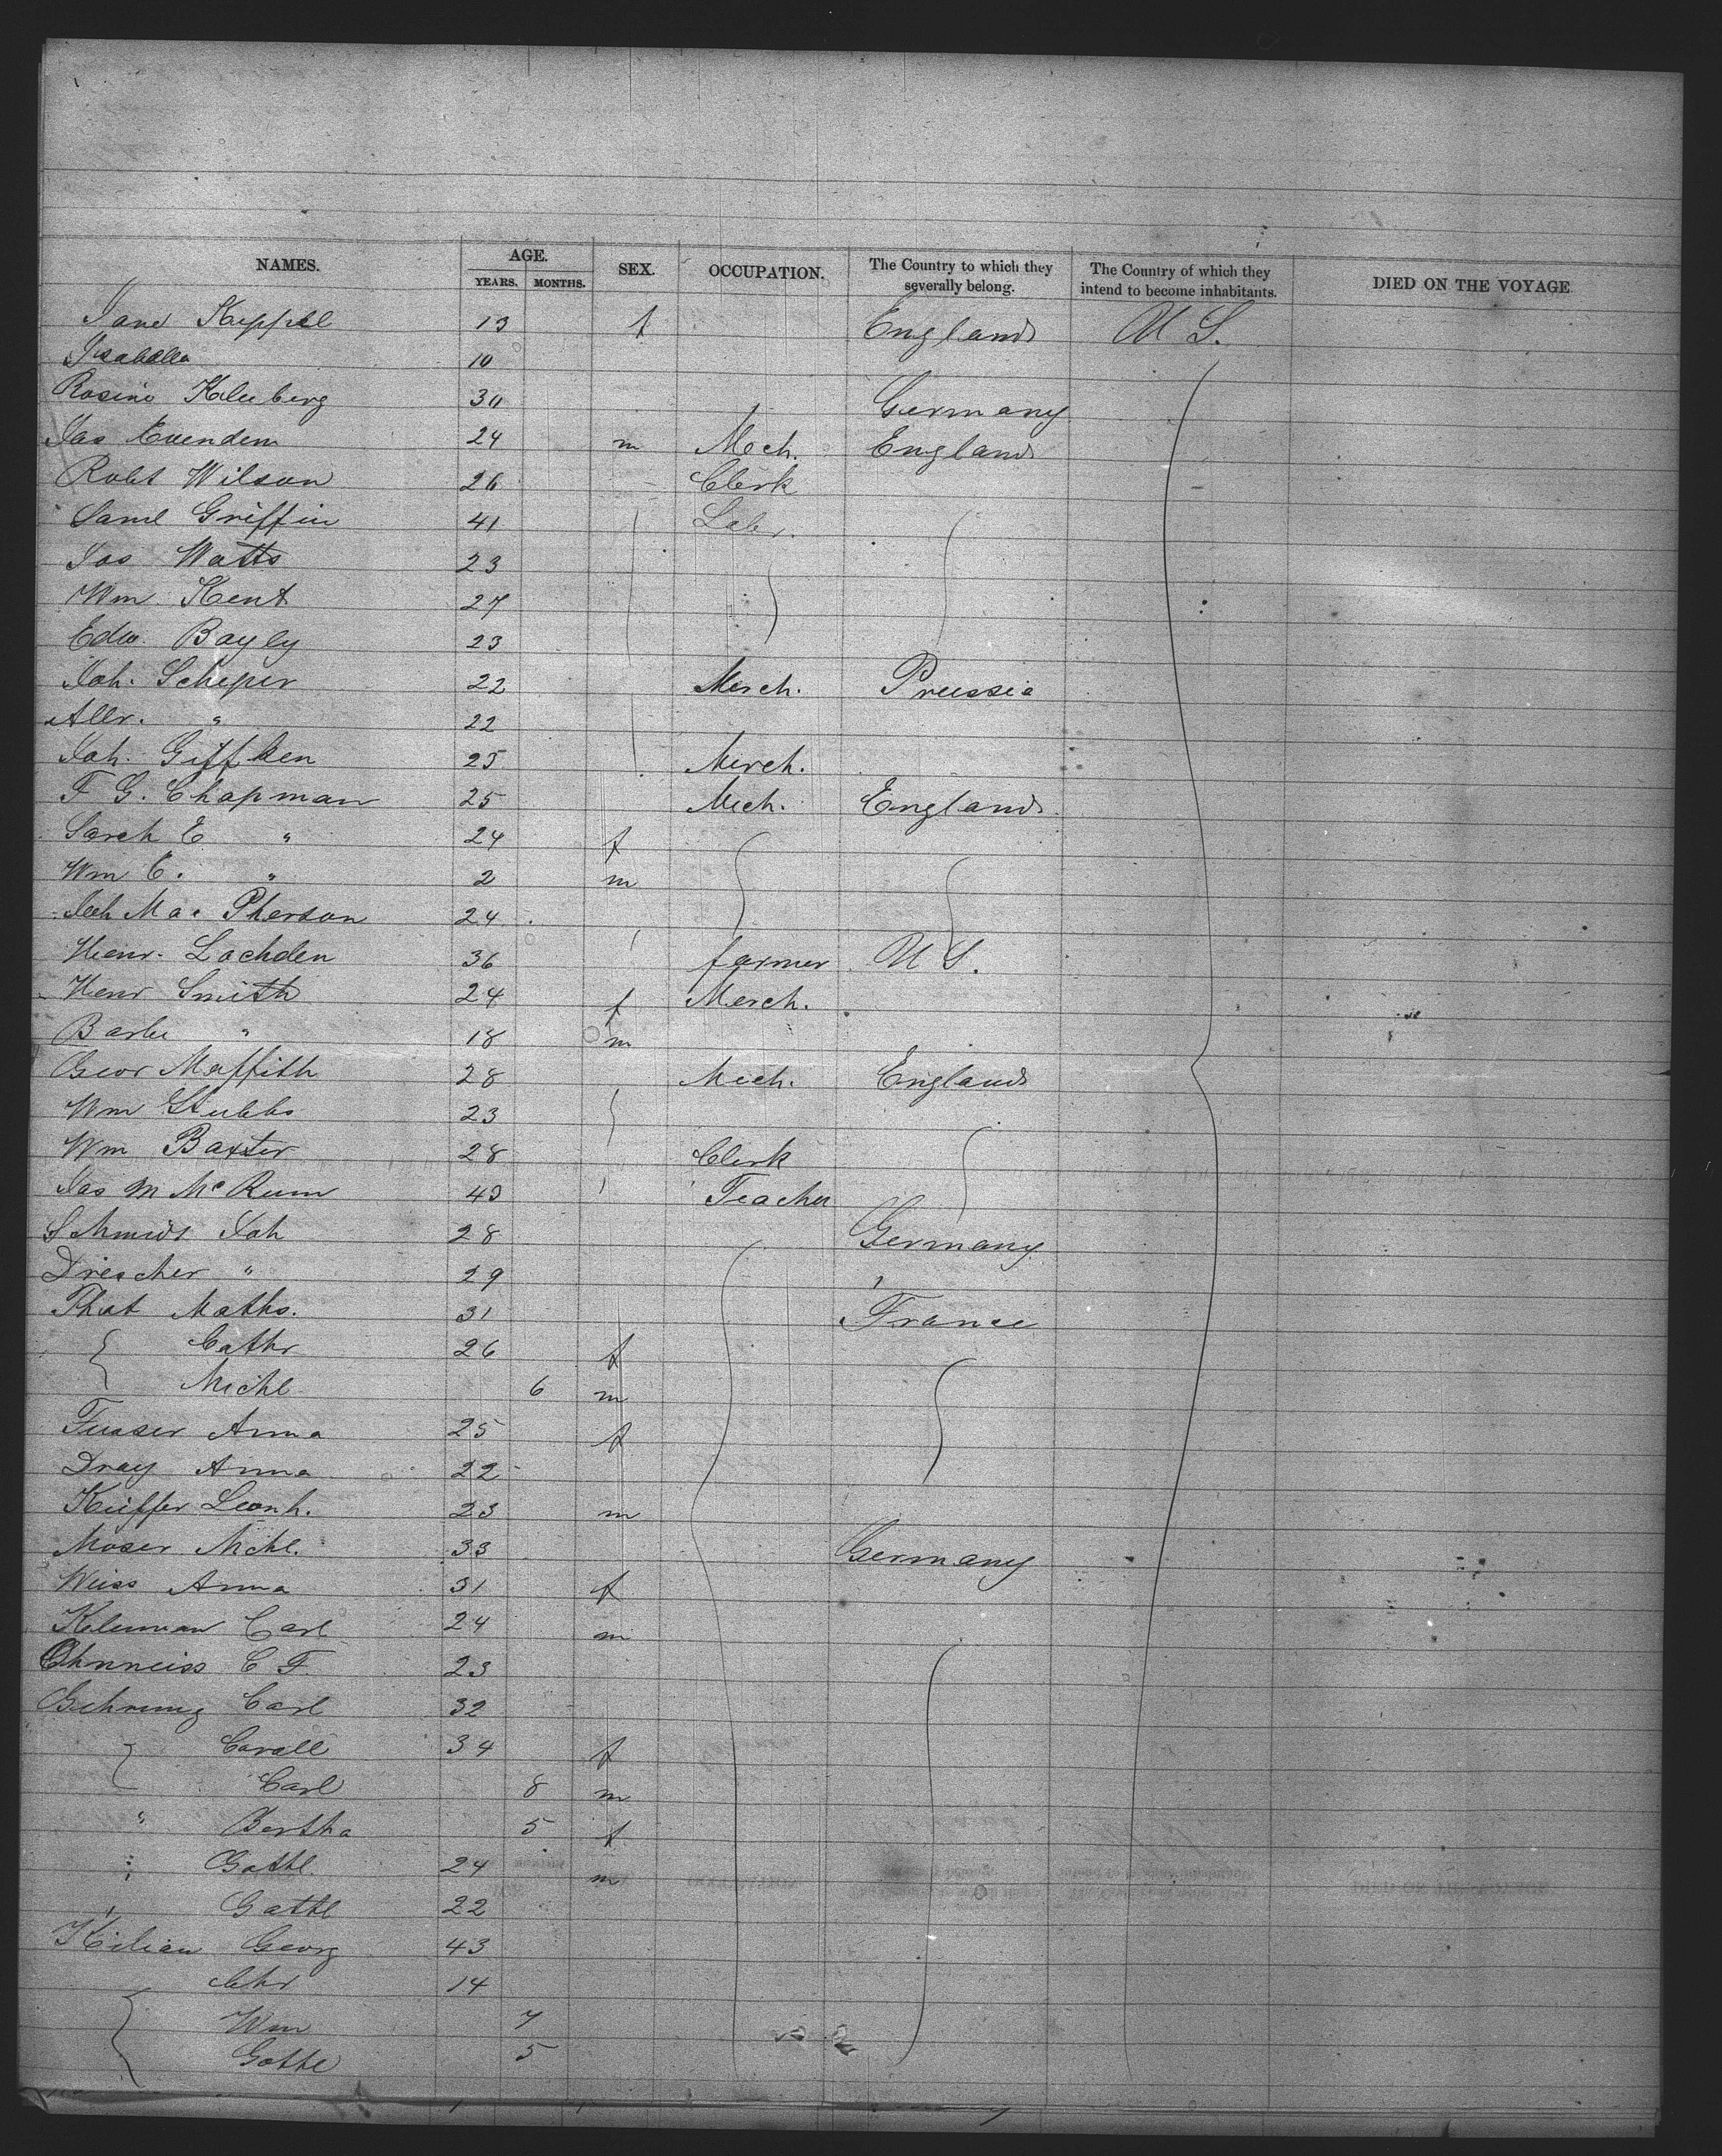 NAMES. AGE. YEARS. MONTHS. SEX. OCCUPATION. The Country to which they severally belong. The Country of which they intend to become inhabitants. DIED ON THE VOYAGE
Jane Keppel 13 f England U S.
Isabella 10
Rosine Kleeberg 30 Germany
Jas 24 m Mech. England
Robt Wilson 26 Clerk
Saml Griffin 41 Lab.
Jas Watts 23
Wm Kent 27
Edw. Bayley 23
Joh. Scheper 22 Merch. Prussia
Albr. " 22
Joh. Giffken 25 Merch.
F G. Chapman 25 Mech. England
Sarah E " 24 f
Wm E. " 2 m
Mac Pherson 24
Henr. Lochden 36 farmer U S.
Henr Smith 24 f Merch.
" 18 m
Geor Maffith 28 Mech. England
Wm Stubbs 23
Wm Baxter 28 Clerk
Jas M Mc 43 Teacher
Schmidt Joh 28 Germany
Drescher " 29 "
Maths. 31 France
Cathr 26 f
Michl 6 m
Anna 25 f
Dray Anna 22
Kieffer Leonh. 23 m
Moser Michl. 33 Germany
Weiss Anna 31 f
Carl 24 m
C F. 23
Gehrung Carl 32
34 f
Carl 8 m
" Bertha 5 f
" Gottl 24 m
" Gottl 22
Kilian Georg 43
Chr 14
Wm 7
Gottl 5